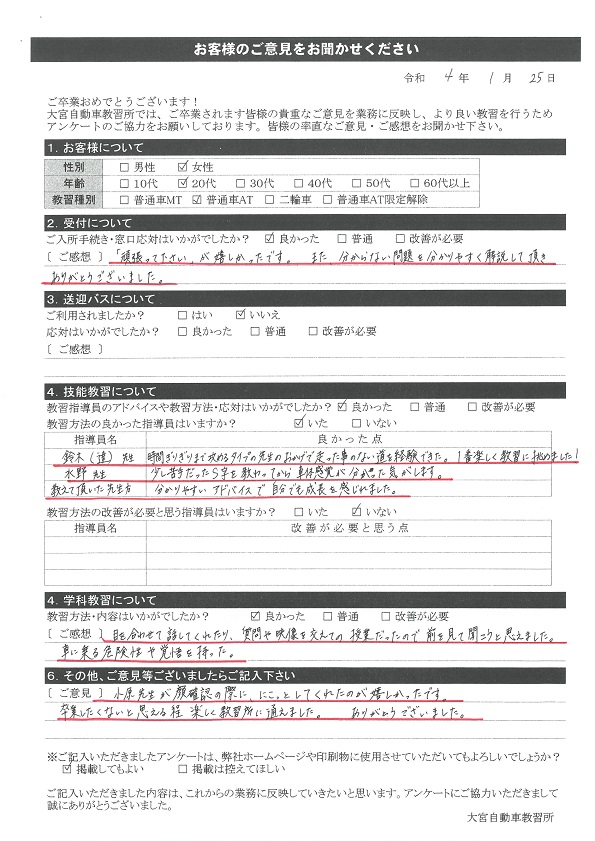 お客様のご意見をお聞かせください
令和 4 年 1 月 25 日
ご卒業おめでとうございます！
大宮自動車教習所では、ご卒業されます皆様の貴重なご意見を業務に反映し、より良い教習を行うため
アンケートのご協力をお願いしております。皆様の率直なご意見・ご感想をお聞かせ下さい。
1. お客様について
性別 □ 男性 ☑ 女性
年齢 □ 10代 ☑ 20代 □ 30代 □ 40代 □ 50代 □ 60代以上
教習種別 □ 普通車MT ☑ 普通車AT □ 二輪車 □ 普通車AT限定解除
2. 受付について
ご入所手続き・窓口応対はいかがでしたか？ ☑ 良かった □ 普通 □ 改善が必要
〔 ご感想 〕 「頑張って下さい」が嬉しかったです。 また、分からない問題を分かりやすく解説して頂き
ありがとうございました。
3. 送迎バスについて
ご利用されましたか？ □ はい ☑ いいえ
応対はいかがでしたか？ □ 良かった □ 普通 □ 改善が必要
〔 ご感想 〕
4. 技能教習について
教習指導員のアドバイスや教習方法・応対はいかがでしたか？ ☑ 良かった □ 普通 □ 改善が必要
教習方法の良かった指導員はいますか？ ☑ いた □ いない
指導員名 良かった点
鈴木（達）先生 時間ぎりぎりまで攻めるタイプの先生のおかげで走った事のない道を経験できた。1番楽しく教習に挑めました！
水野先生 少し苦手だったS字を教わってから車体感覚が分かった気がします。
教えて頂いた先生方 分かりやすいアドバイスで自分でも成長を感じれました。
教習方法の改善が必要と思う指導員はいますか？ □ いた ☑ いない
指導員名 改善が必要と思う点
4. 学科教習について
教習方法・内容はいかがでしたか？ ☑ 良かった □ 普通 □ 改善が必要
〔 ご感想 〕 目を合わせて話してくれたり、質問や映像を交えての授業だったので前を見て聞こうと思えました。
車に乗る危険性や覚悟を持った。
6. その他、ご意見等ございましたらご記入下さい
〔 ご意見 〕 小原先生が顔確認の際に、にこっとしてくれたのが嬉しかったです。
卒業したくないと思える程楽しく教習所に通えました。 ありがとうございました。
※ご記入いただきましたアンケートは、弊社ホームページや印刷物に使用させていただいてもよろしいでしょうか？
☑ 掲載してもよい □ 掲載は控えてほしい
ご記入いただきました内容は、これからの業務に反映していきたいと思います。アンケートにご協力いただきまして
誠にありがとうございました。
大宮自動車教習所